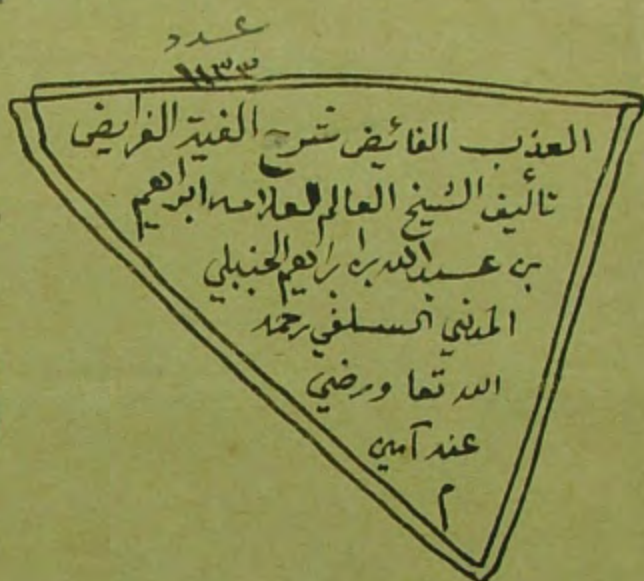 عدد
العذب الفائض شرح الفية الفرايض
تأليف الشيخ العالم العلامه ابراهيم
بن عبد الله بن ابراهيم الحنبلي
المدني السلفي رحمه
الله تعا ورضي
عنه آمين
م